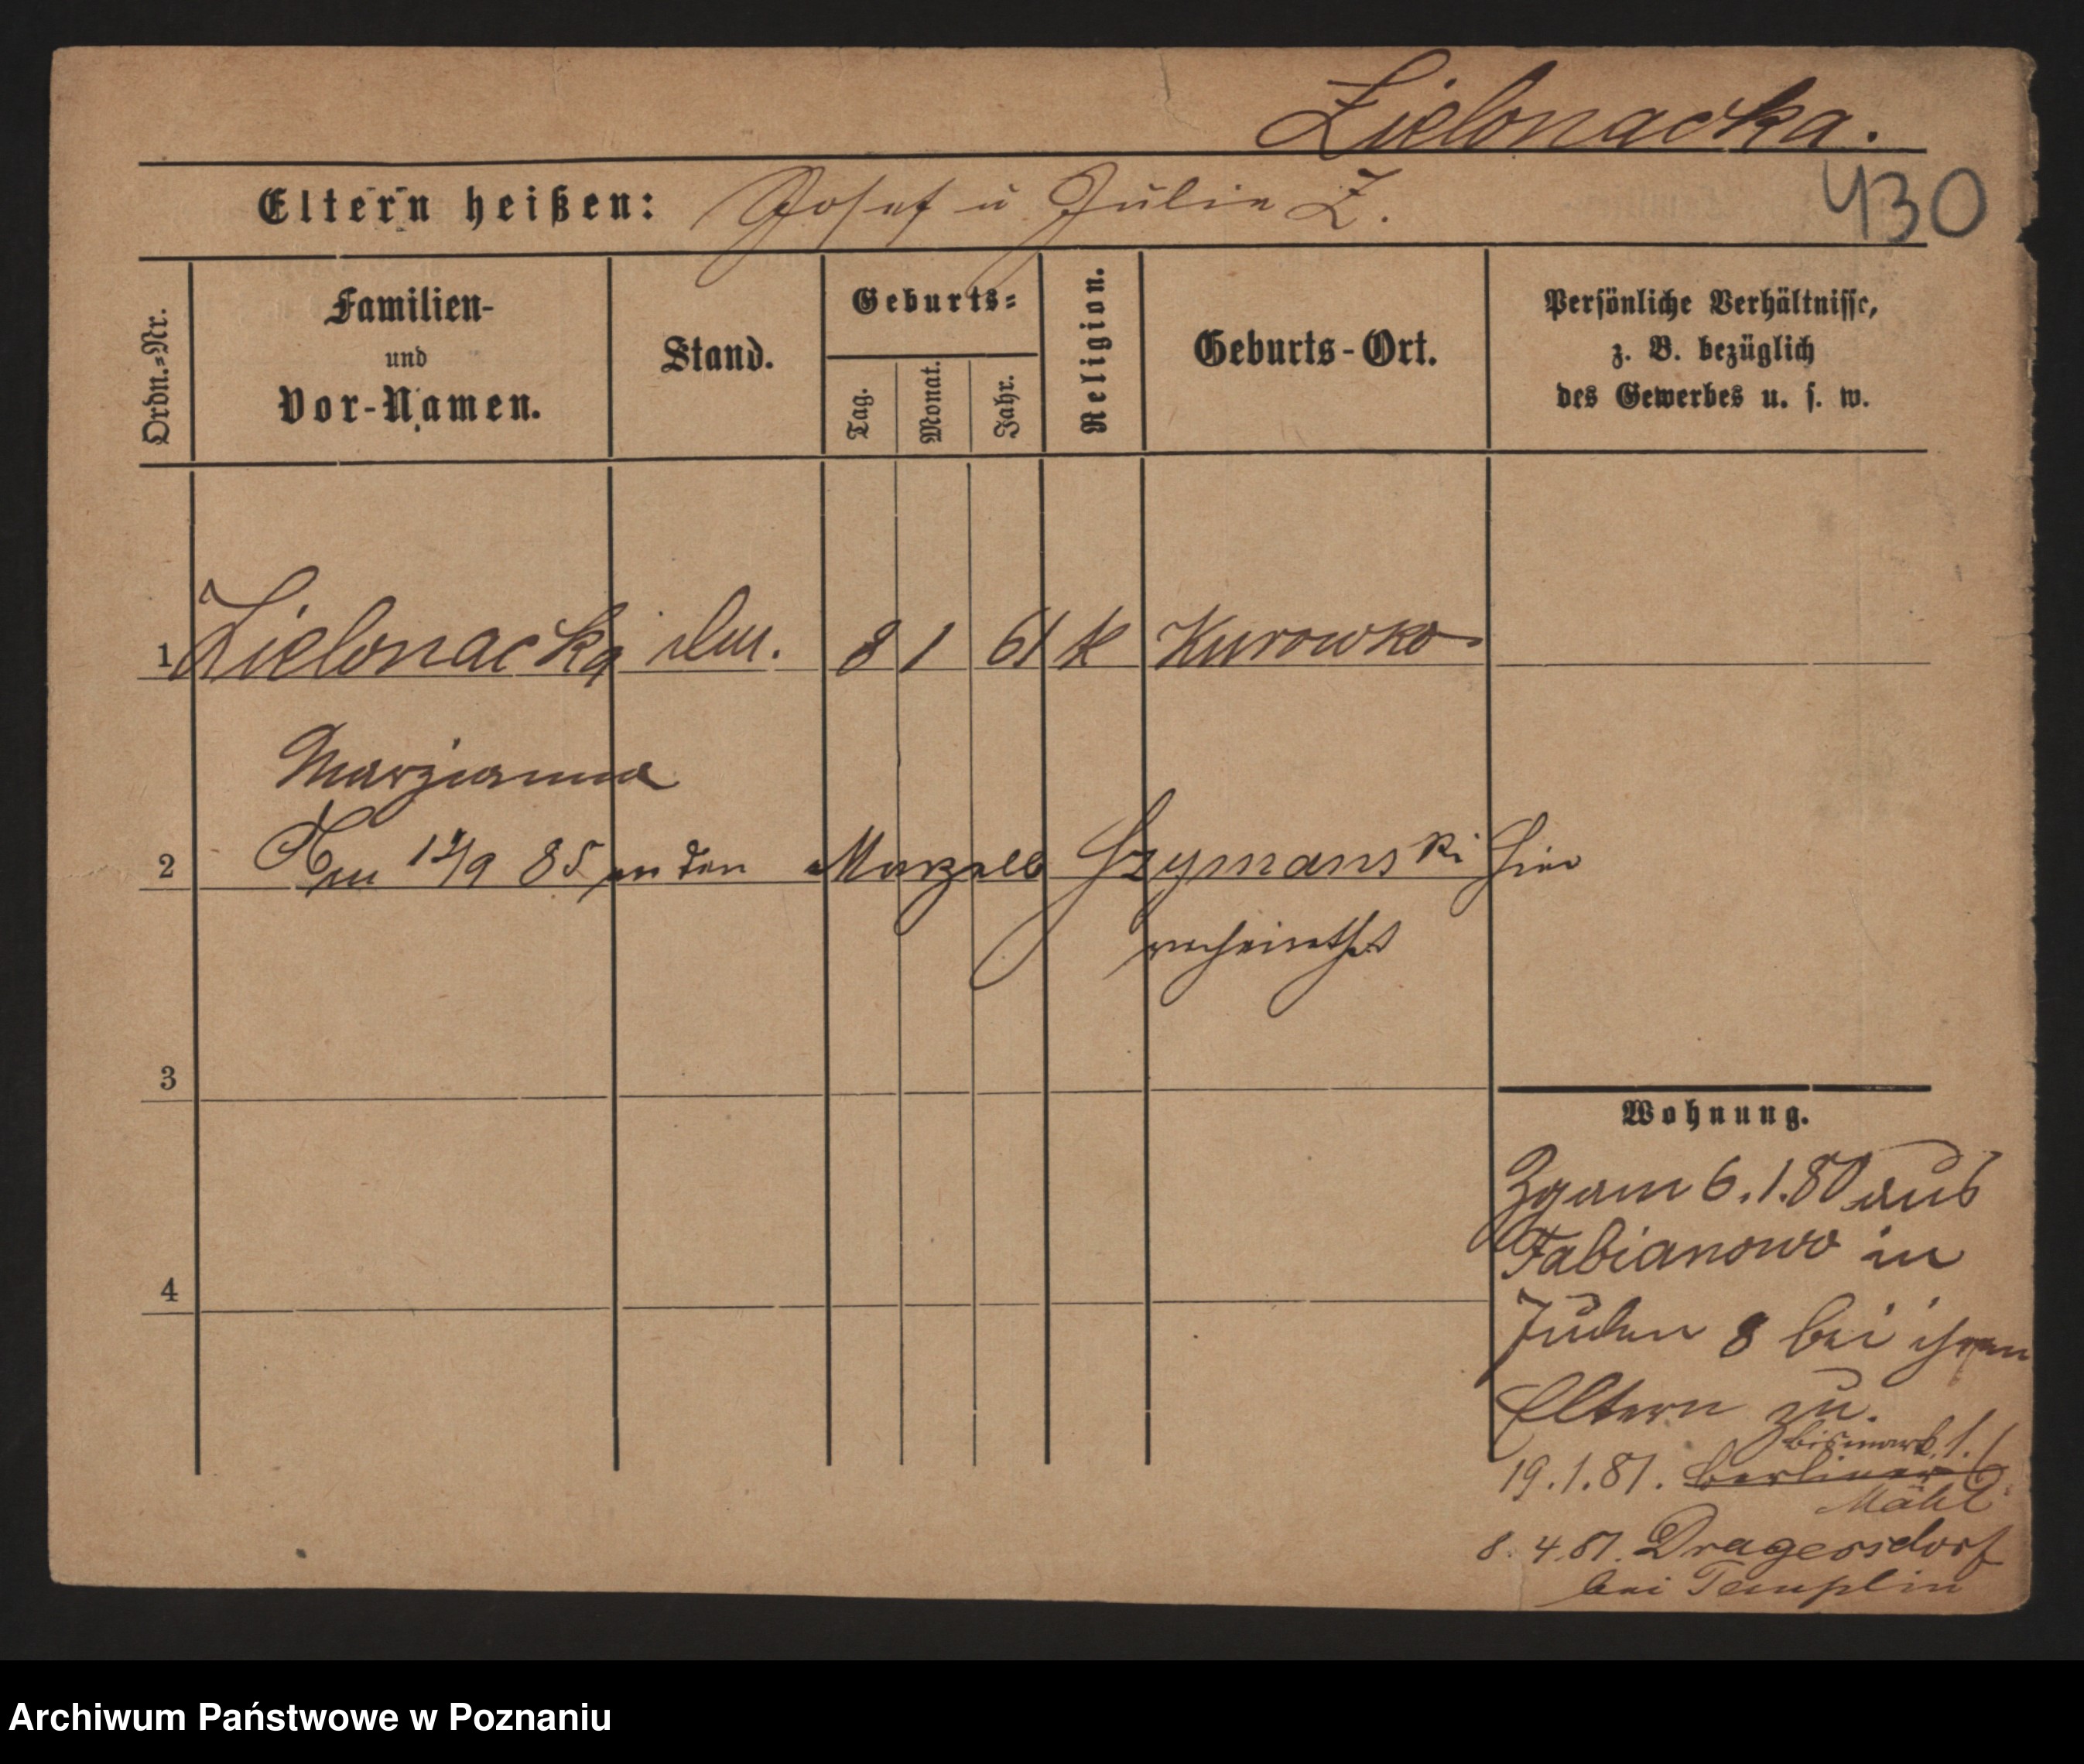 Zielonacka.
Eltern heißen: Josef u Julie Z.
430
Ordn.=Nr.
Familien-
und
Vor-Namen.
Stand.
Geburts=
Tag.
Monat.
Jahr.
Religion.
Geburts-Ort.
Persönliche Verhältnisse,
z. B. bezüglich
des Gewerbes u. s. w.
1 Zielonacka 8 1 61 k Kurowko
Marzianna
2 85 an den Marzell Szymanski hier
verheirathet
3
Wohnung.
Zg am 6.1.80 aus
Fabianowo in
4
Juden 8 bei ihren
Eltern zu.
Bismark. 1.
19.1.81. Berliner
8.4.81. Dragersdorf
bei Templin
Archiwum Państwowe w Poznaniu